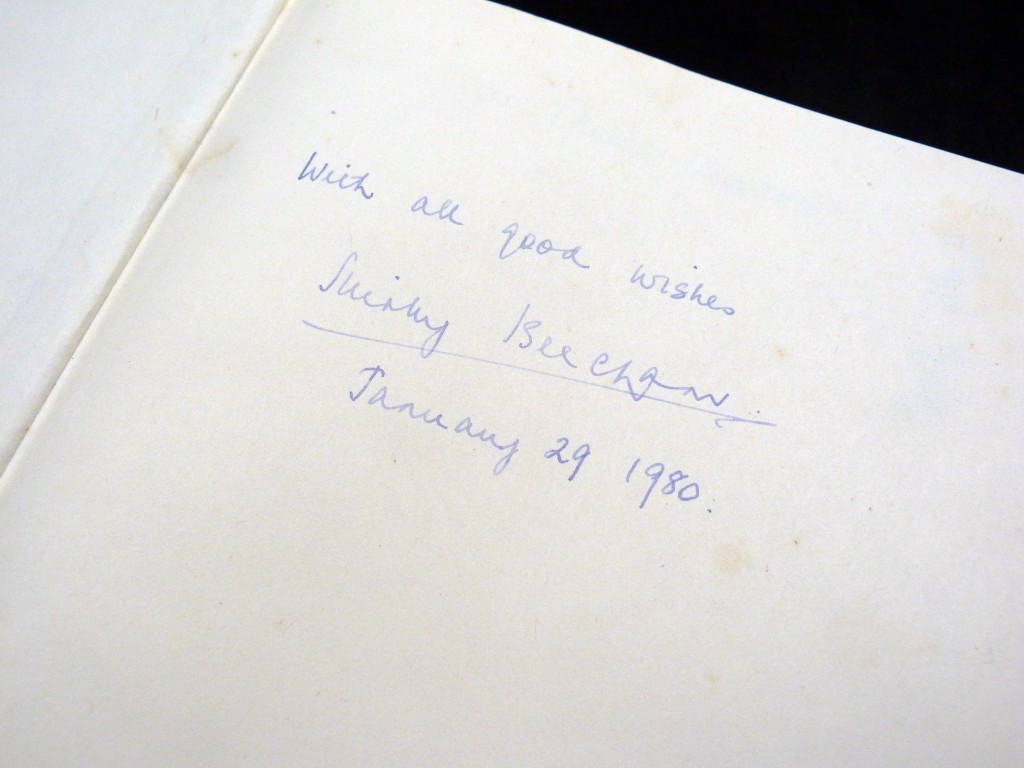 With all good wishes
Shirley Beecham.
January 29 1980.